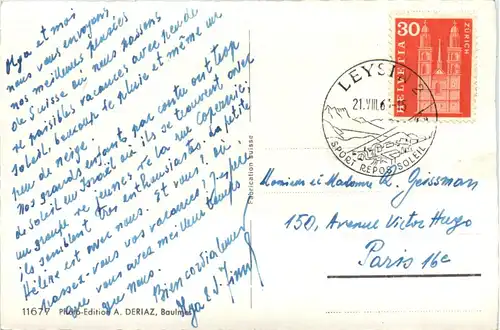 Olga et moi
nous vous envoyons
nos meilleures pensées
de Suisse où nous passons
de paisibles vacances, avec peu de
soleil, beaucoup de pluie et même un
peu de neige.
Nos grands enfants par contre ont trop
de soleil en Israël où ils se trouvent avec
un groupe de jeunes de la rue Copernic,
ils semblent très enthousiastes. La petite
Hélène est avec nous. Et vous? Où
passez-vous vos vacances? J'espère
que vous avez meilleur temps
que nous.
Bien cordialement
Olga et J.
11677 Photo-Edition A. DERIAZ, Baulmes
Fabrication Suisse
30
HELVETIA
ZÜRICH
LEYSIN 2
21.VIII.6
SPORT REPOS SOLEIL
Monsieur et Madame R. Geissman
150, Avenue Victor Hugo
Paris 16e